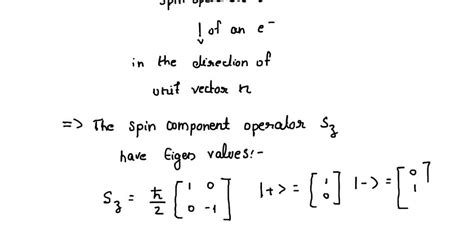 of an e⁻
in the direction of
unit vector n
=> The spin component operator S_z
have Eigen values:-
S_z = ħ/2 [1 0; 0 -1] |+> = [1; 0] |-> = [0; 1]